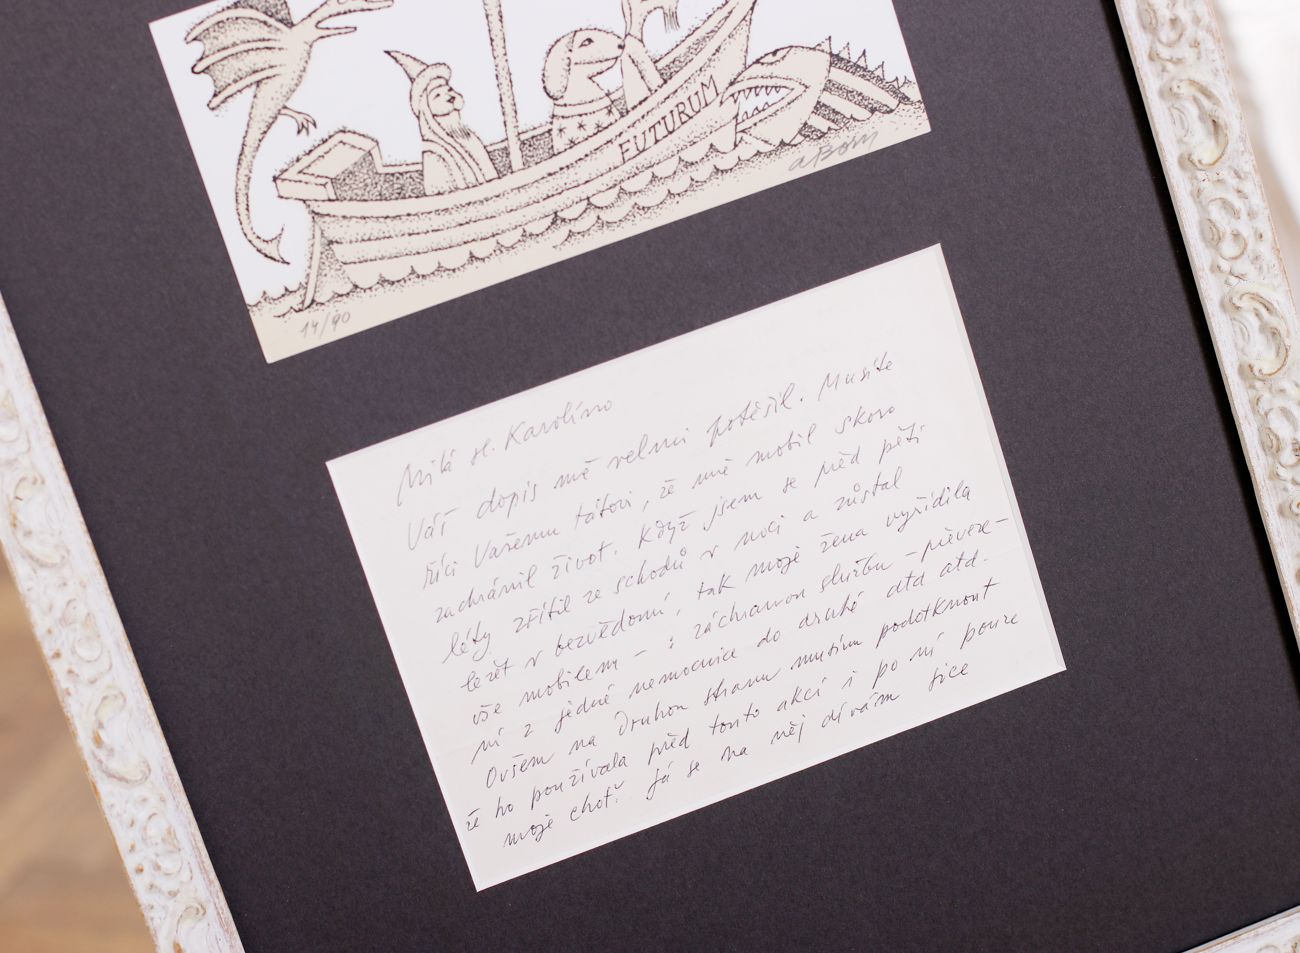 FUTURUM
aBorn
14/90
Milá sl. Karolíno
Váš dopis mě velmi potěšil. Musíte
říci Vašemu tátovi, že mně mobil skoro
zachránil život. Když jsem se před pěti
léty zřítil ze schodů v noci a zůstal
ležet v bezvědomí, tak moje žena vyřídila
vše mobilem - : záchranou službu - převeze-
ní z jedné nemocnice do druhé atd atd.
Ovšem na druhou stranu musím podotknout
že ho používala před touto akcí i po ní pouze
moje choť. Já se na něj dívám sice